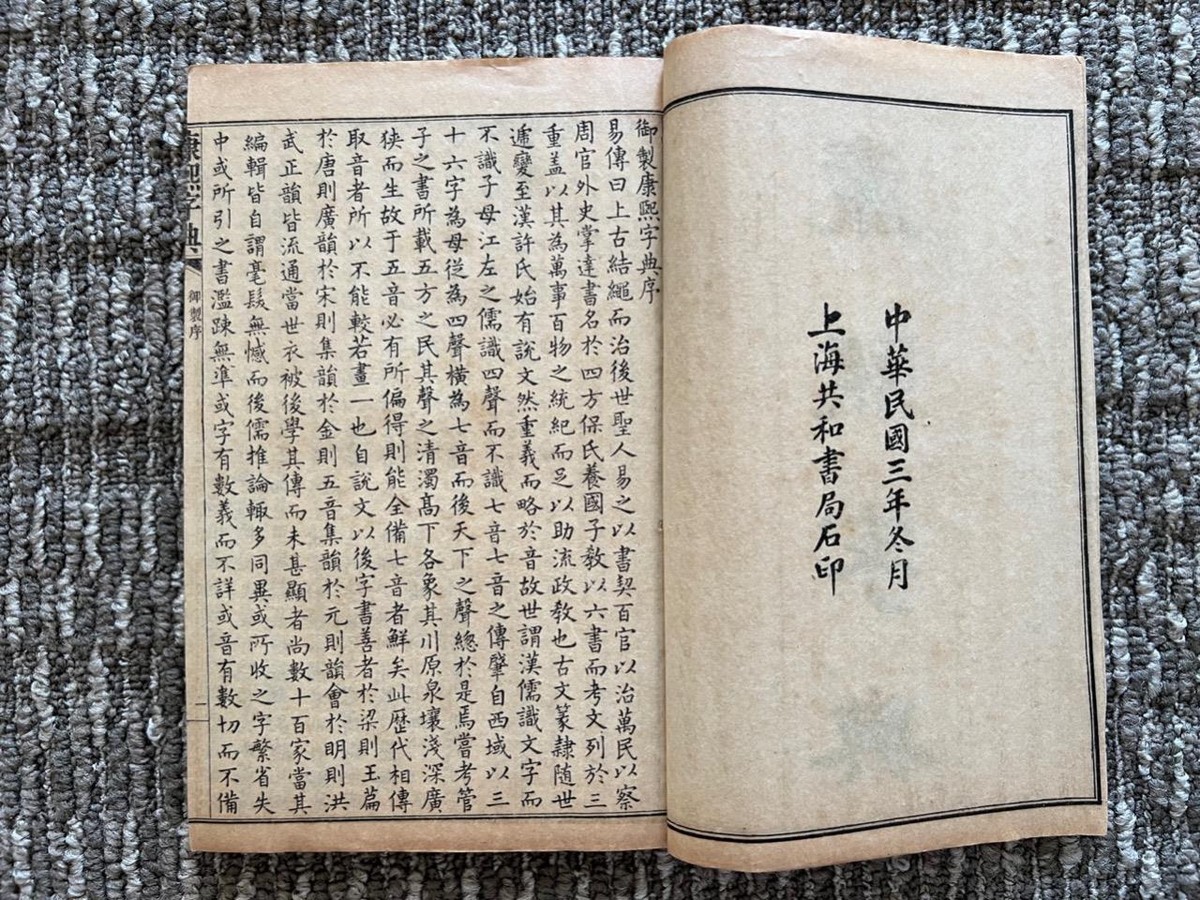 中華民國三年冬月
上海共和書局石印
御製康熙字典序
易傳曰上古結繩而治後世聖人易之以書契百官以治萬民以察
周官外史掌達書名於四方保氏養國子教以六書而考文列於三
重盖以其為萬事百物之統紀而足以助流政教也古文篆隸随世
遞變至漢許氏始有說文然重義而略於音故世謂漢儒識文字而
不識子母江左之儒識四聲而不識七音七音之傳肇自西域以三
十六字為母從為四聲橫為七音而後天下之聲總於是焉嘗考管
子之書所載五方之民其聲之清濁高下各象其川原泉壤淺深廣
狹而生故于五音必有所偏得則能全備七音者鮮矣此歷代相傳
取音者所以不能較若畫一也自說文以後字書善者於梁則玉篇
於唐則廣韻於宋則集韻於金則五音集韻於元則韻會於明則洪
武正韻皆流通當世衣被後學其傳而未甚顯者尚數十百家當其
編輯皆自謂毫髮無憾而後儒推論輙多同異或所收之字繁省失
中或所引之書濫踈無準或字有數義而不詳或音有數切而不備
康熙字典
御製序
一